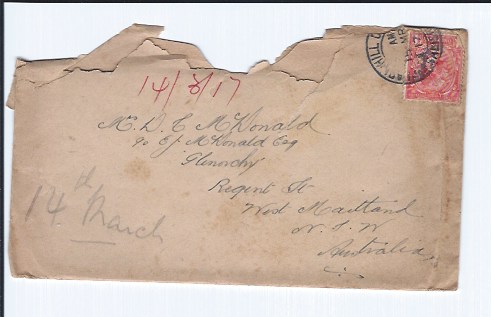 14/3/17
Mr. D. C McDonald
c/o E J McDonald Esq
Glenorchy
Regent St
West Maitland
N. S. W
Australia
14th March